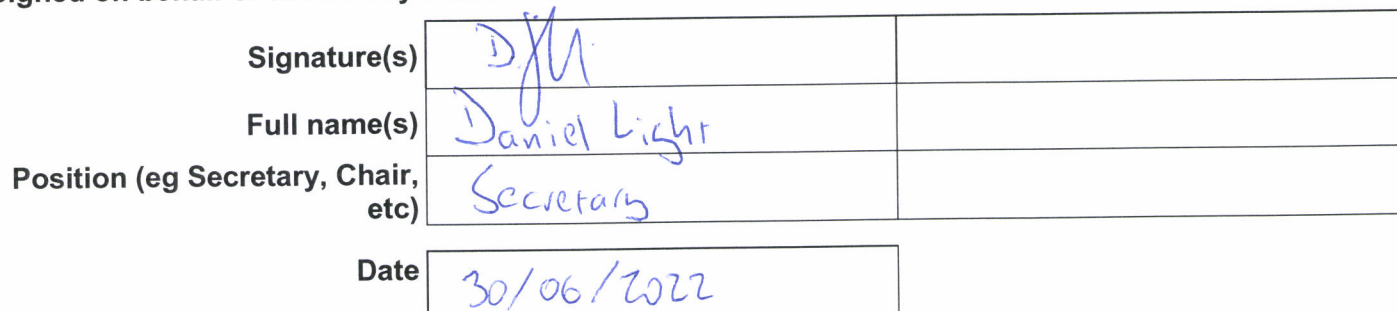 Signature(s)
Full name(s) Daniel Light
Position (eg Secretary, Chair,
etc) Secretary
Date 30/06/2022